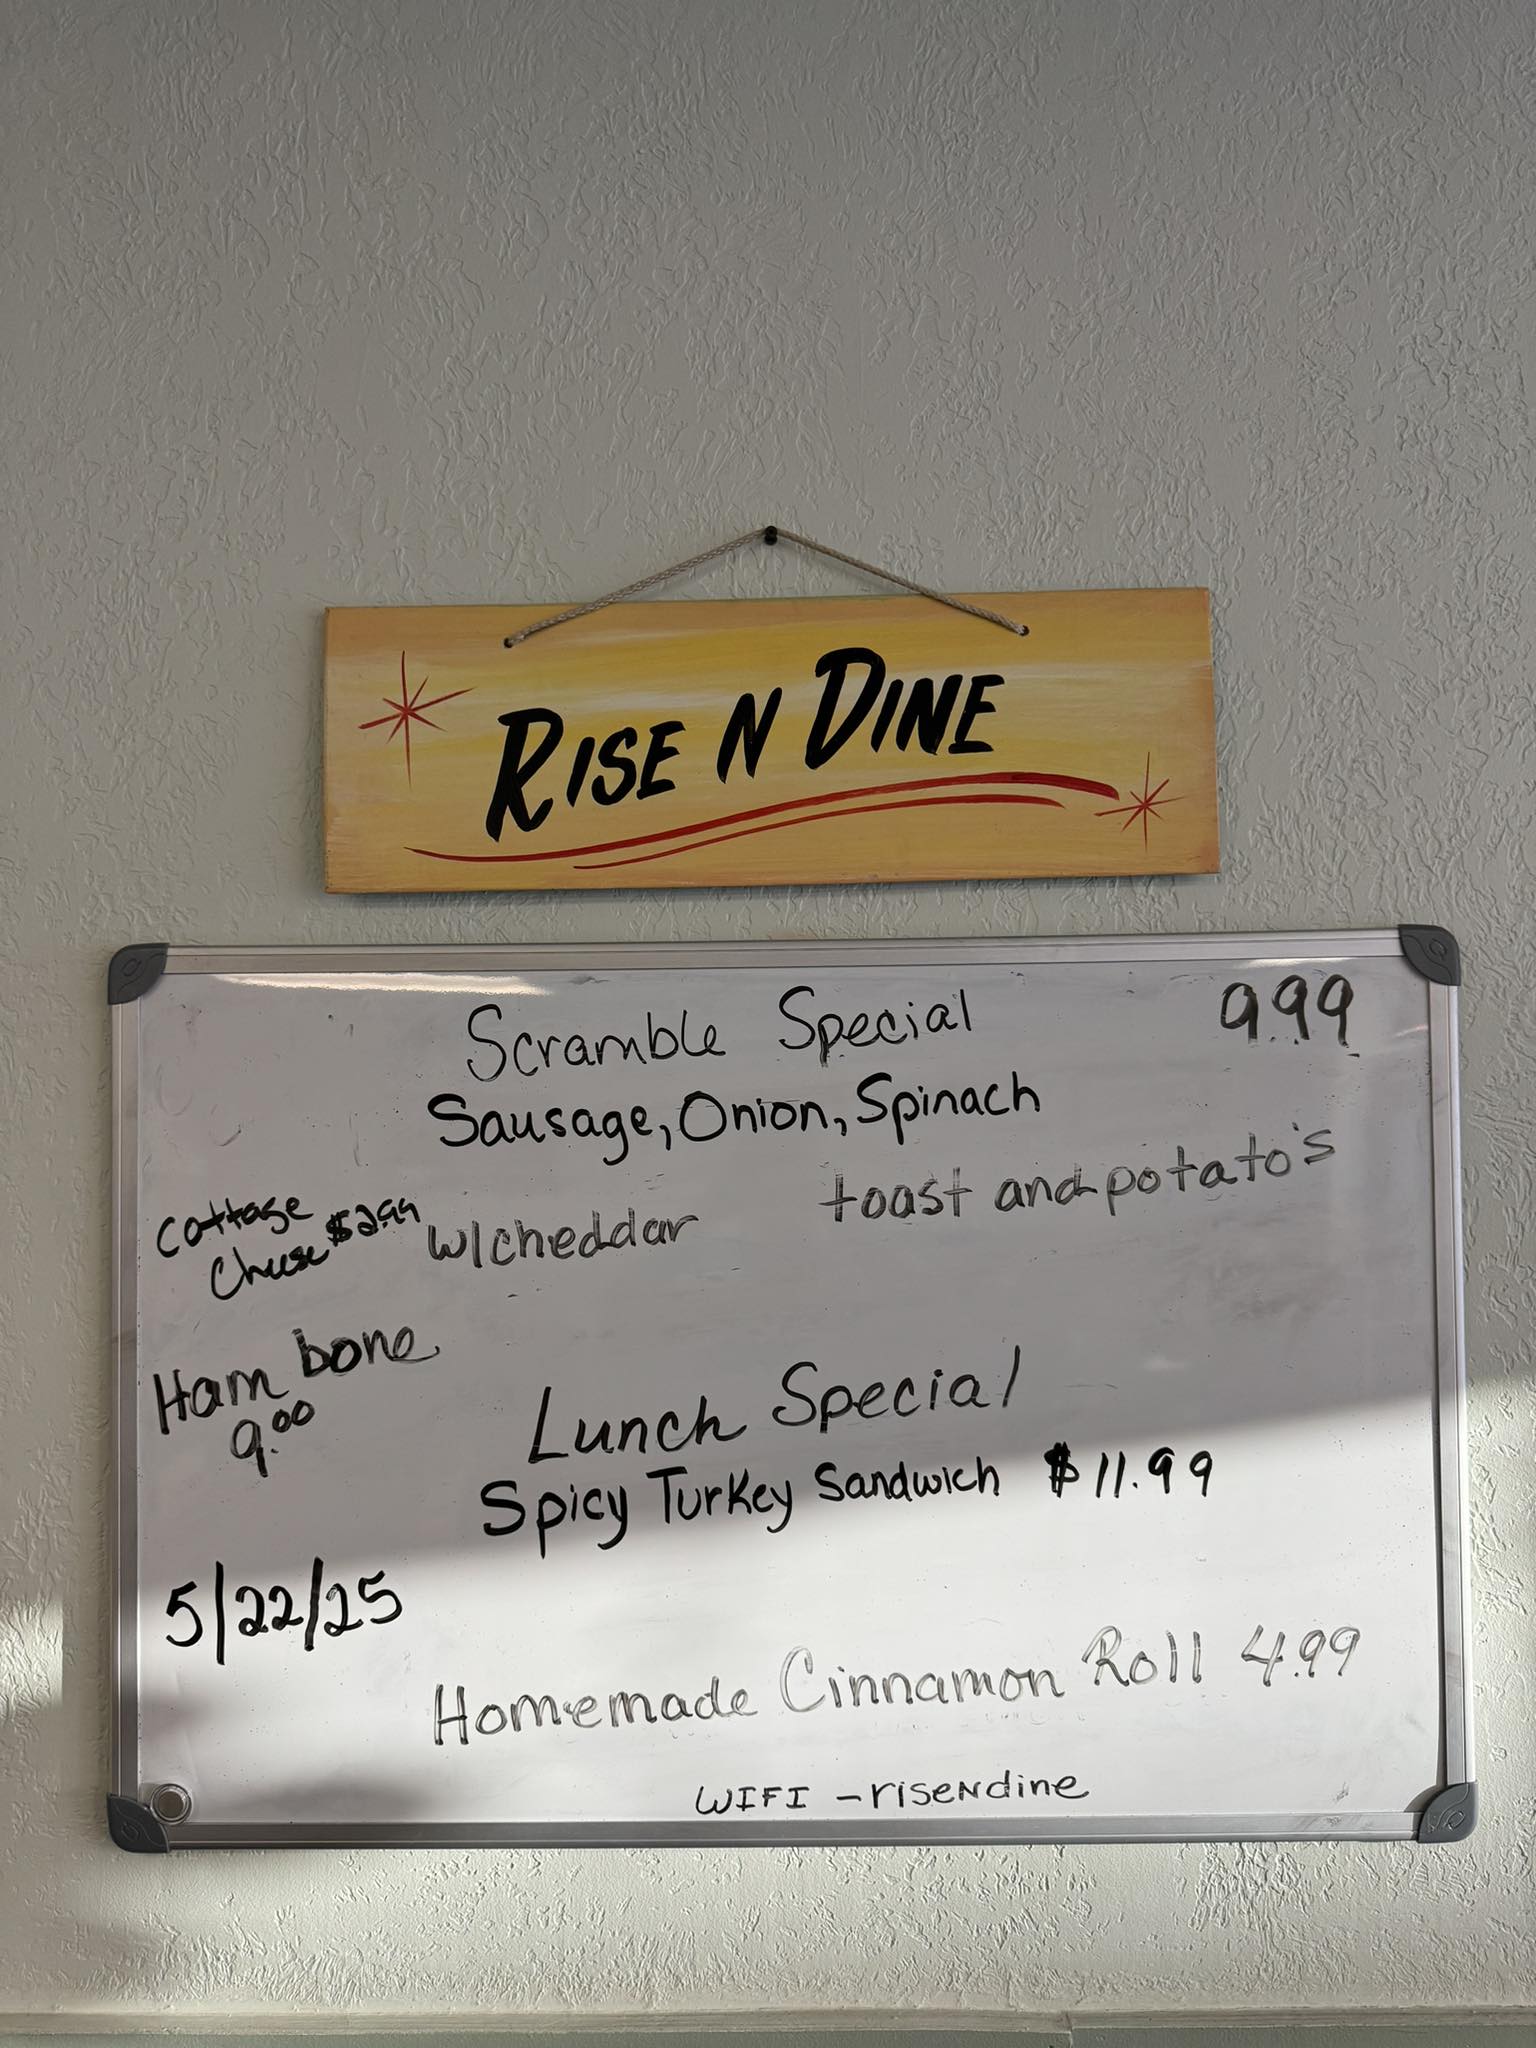 RISE N DINE
Scramble Special 9.99
Sausage, Onion, Spinach
w/cheddar toast and potato's
Cottage
Cheese $2.99
Ham bone
9.00
Lunch Special
Spicy Turkey Sandwich $11.99
5/22/25
Homemade Cinnamon Roll 4.99
WIFI - riseNdine